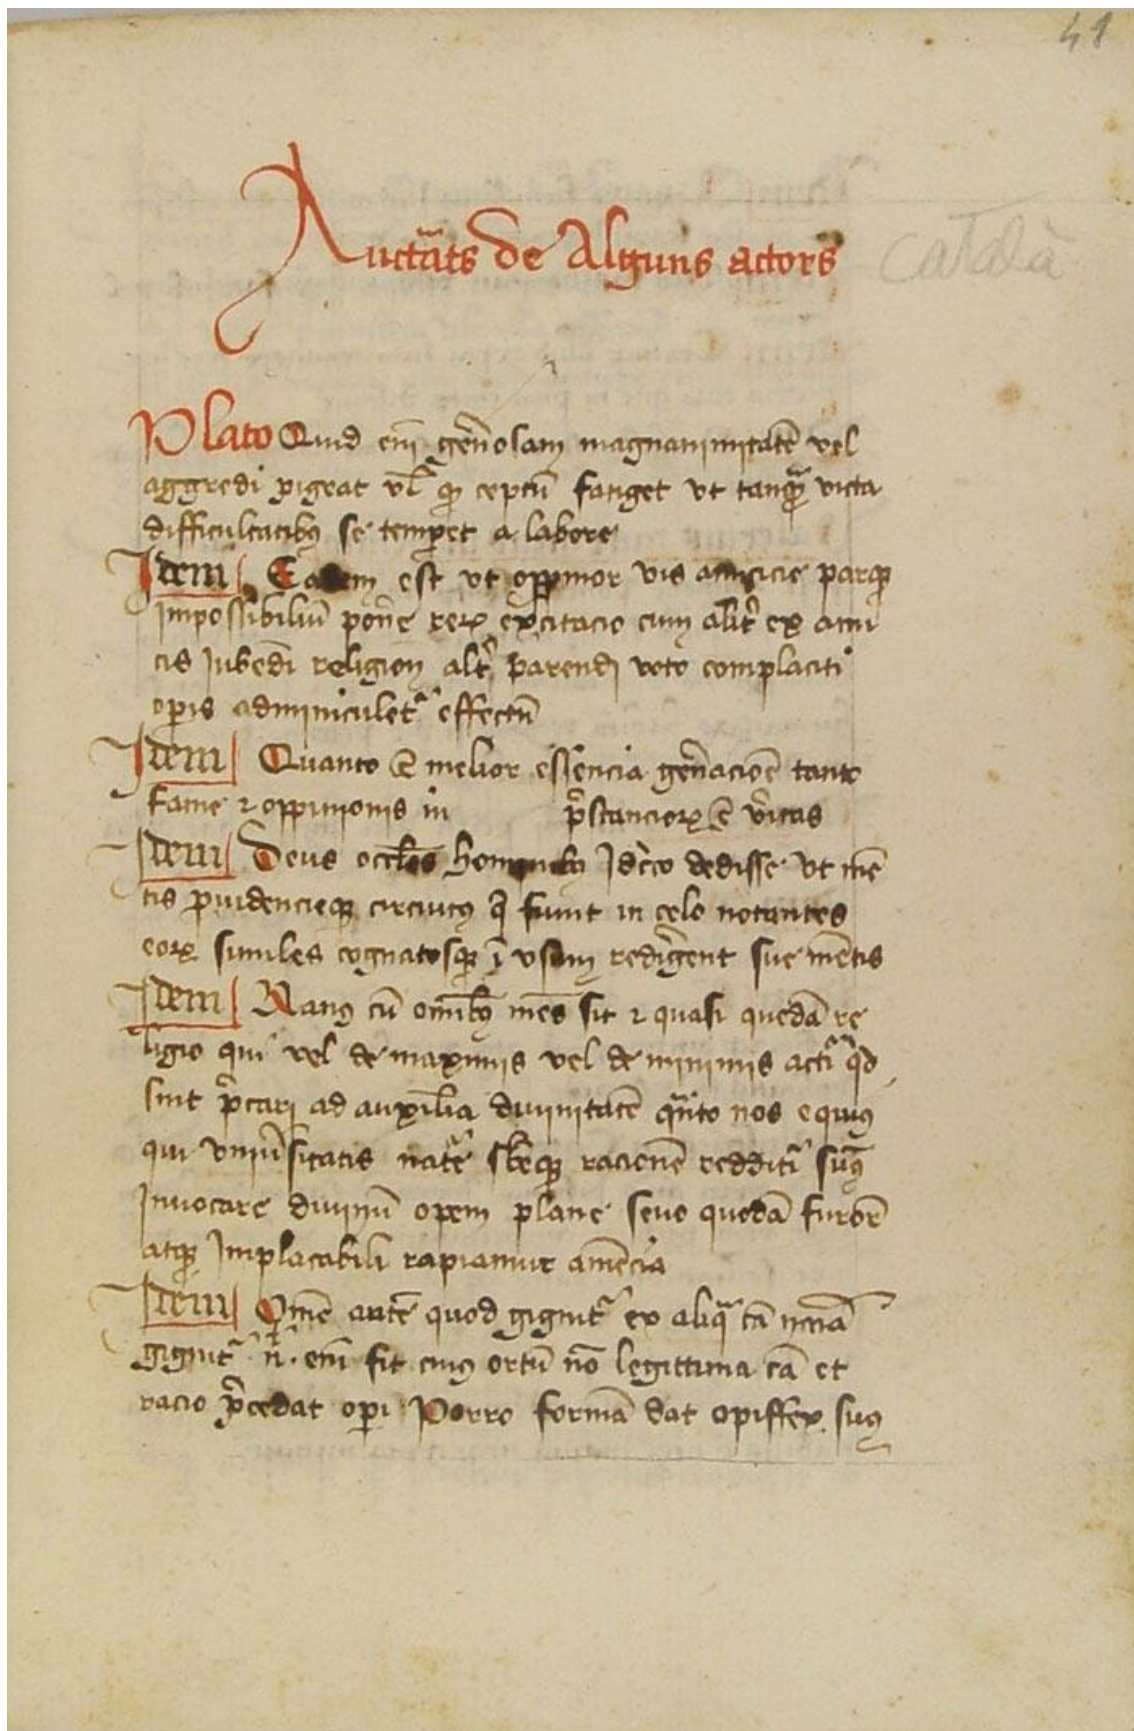 41
Auctãts de Alguns actors
català
Plato Quid em̃ gen̄osam magnanimitatē vel
aggredi pigeat vl̄ ceptū fatiget vt tanq̃ victa
difficultatibꝫ se temꝑet a labore
Idem Eadem est vt oppinor vis amicicie parqꝫ
Impossibiliū poñe reꝝ excitacio cum alit̃ ex ami
cis Iubēdi religion alt̃ parendi voto complaciti
oꝑis adminiculet᷑ effectū
Idem Quanto ē melior essencia gen̄acioē tanto
fame ⁊ oppinionis in p̃stancioꝝ ē v̄itas
Idem Deus occl̄os hominibꝫ Idc̄co dedisse vt mē
tis ꝓuidencieqꝫ circuitꝰ q̄ fiunt in celo notantes
eoꝝ similes cognatosqꝫ ī vsum redig̃ent sue mētis
Idem Namꝫ cū omĩbꝫ mōs sit ⁊ quasi quedā re
ligio qui vel de maximis vel de minimis act̃i q̄d
sint p̃cari ad auxilia diuinitatē q̃nto nos equiꝰ
qui vniũsitatis nat̃e sb̄eqꝫ racionē reddit᷑i sumꝰ
Inuocare diuinū opem plane seuo quodā furorē
atqꝫ Implacabili rapiamur amēcia
Idem Om̄e autē quod gignit᷑ ex aliq̃ cā nc̄cā
gignit᷑ n̄. em̃ fit cuiꝰ ortū nō legittima cā et
racio p̃cedat oꝑi Porro formā dat opiffex suꝰ